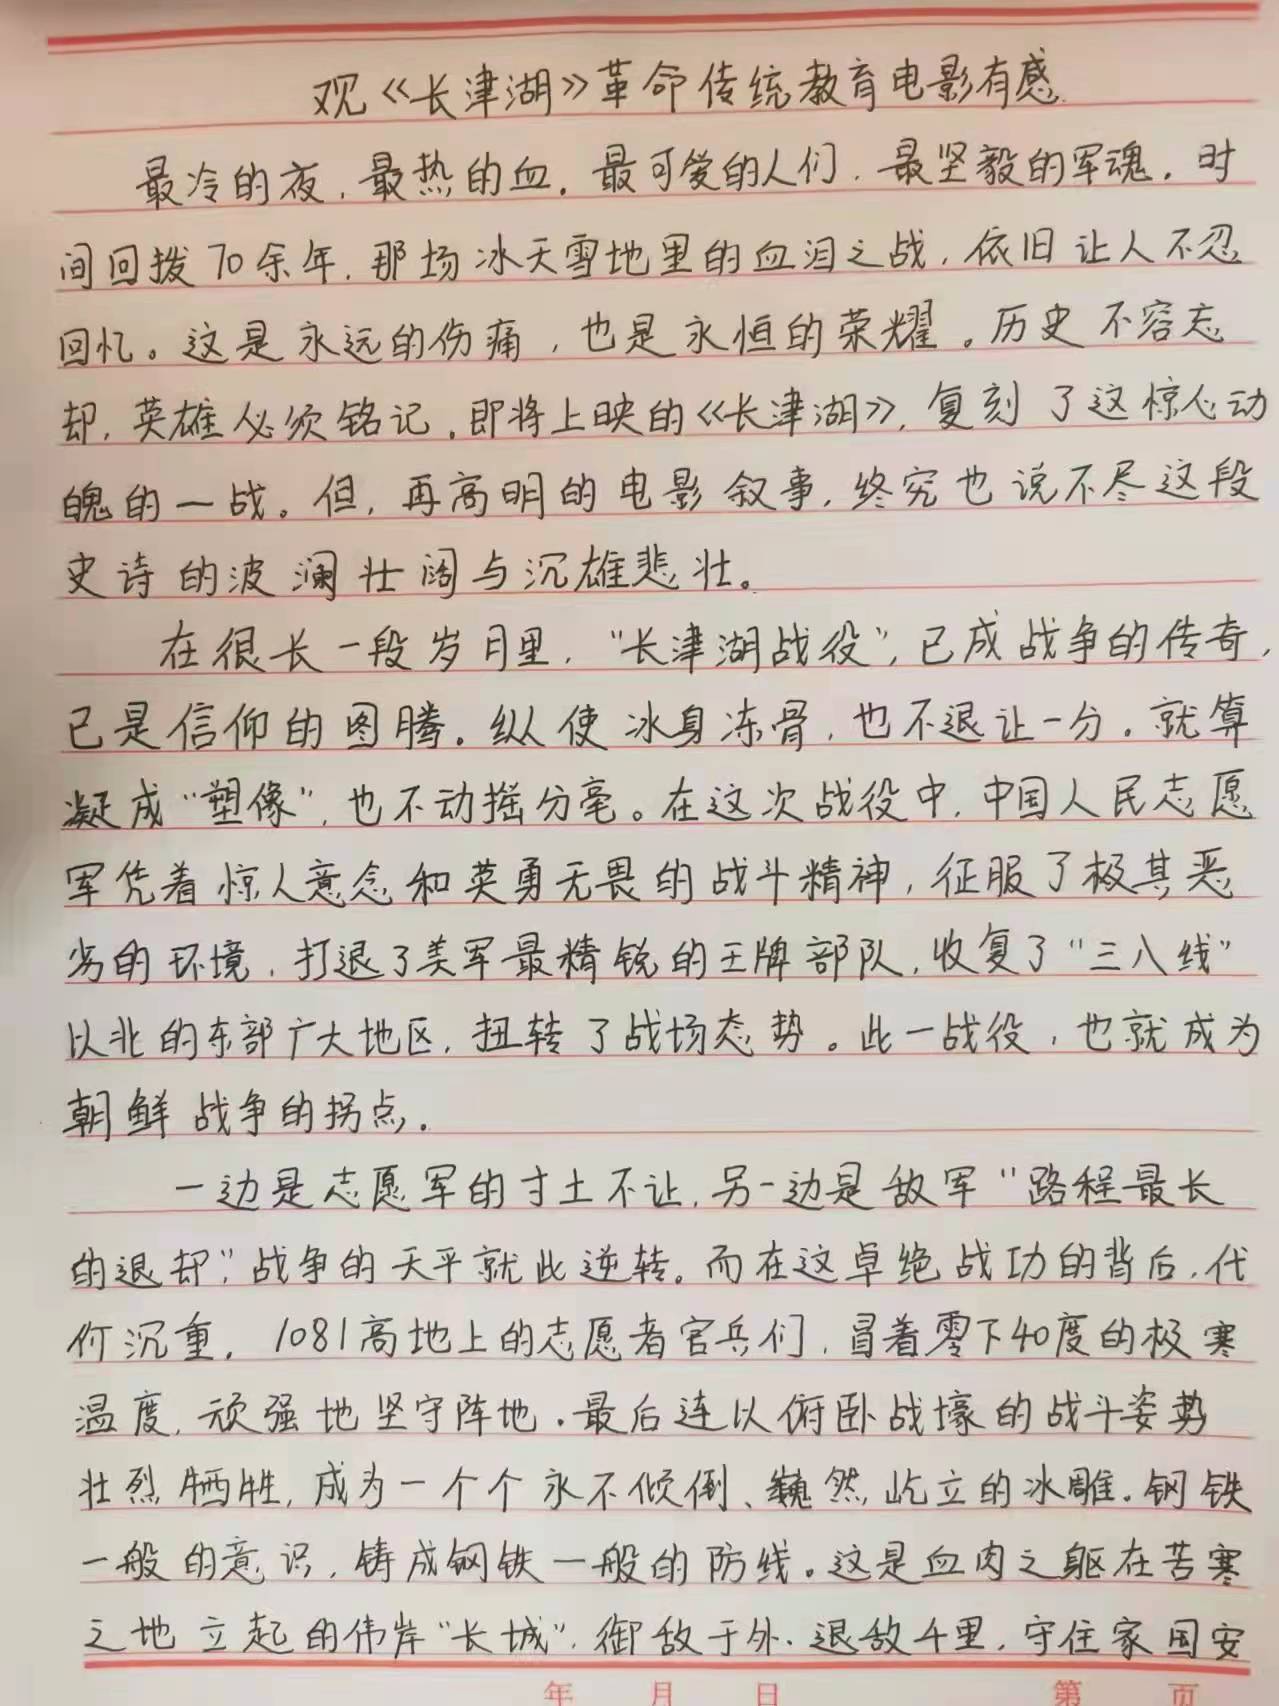 观《长津湖》革命传统教育电影有感
最冷的夜，最热的血。最可爱的人们，最坚毅的军魂。时
间回拨70余年，那场冰天雪地里的血泪之战，依旧让人不忍
回忆。这是永远的伤痛，也是永恒的荣耀。历史不容忘
却，英雄必须铭记。即将上映的《长津湖》，复刻了这惊心动
魄的一战。但，再高明的电影叙事，终究也说不尽这段
史诗的波澜壮阔与沉雄悲壮。
在很长一段岁月里，“长津湖战役”，已成战争的传奇，
已是信仰的图腾。纵使冰身冻骨，也不退让一分。就算
凝成“塑像”，也不动摇分毫。在这次战役中，中国人民志愿
军凭着惊人意念和英勇无畏的战斗精神，征服了极其恶
劣的环境，打退了美军最精锐的王牌部队，收复了“三八线”
以北的东部广大地区，扭转了战场态势。此一战役，也就成为
朝鲜战争的拐点。
一边是志愿军的寸土不让，另一边是敌军“路程最长
的退却”，战争的天平就此逆转。而在这卓绝战功的背后，代
价沉重。1081高地上的志愿者官兵们，冒着零下40度的极寒
温度，顽强地坚守阵地。最后连以俯卧战壕的战斗姿势
壮烈牺牲，成为一个个永不倾倒、巍然屹立的冰雕。钢铁
一般的意识，铸成钢铁一般的防线。这是血肉之躯在苦寒
之地立起的伟岸“长城”，御敌于外，退敌千里，守住家国安
年 月 日 第 页